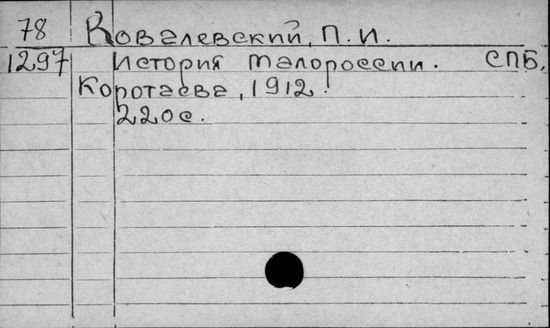 78 Ковалевский, П. И.
1297 История Малороссии. СПБ,
Коротаева, 1912.
220с.